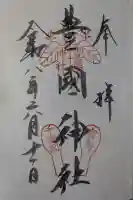 奉拝
豊國神社
令和八年二月十一日